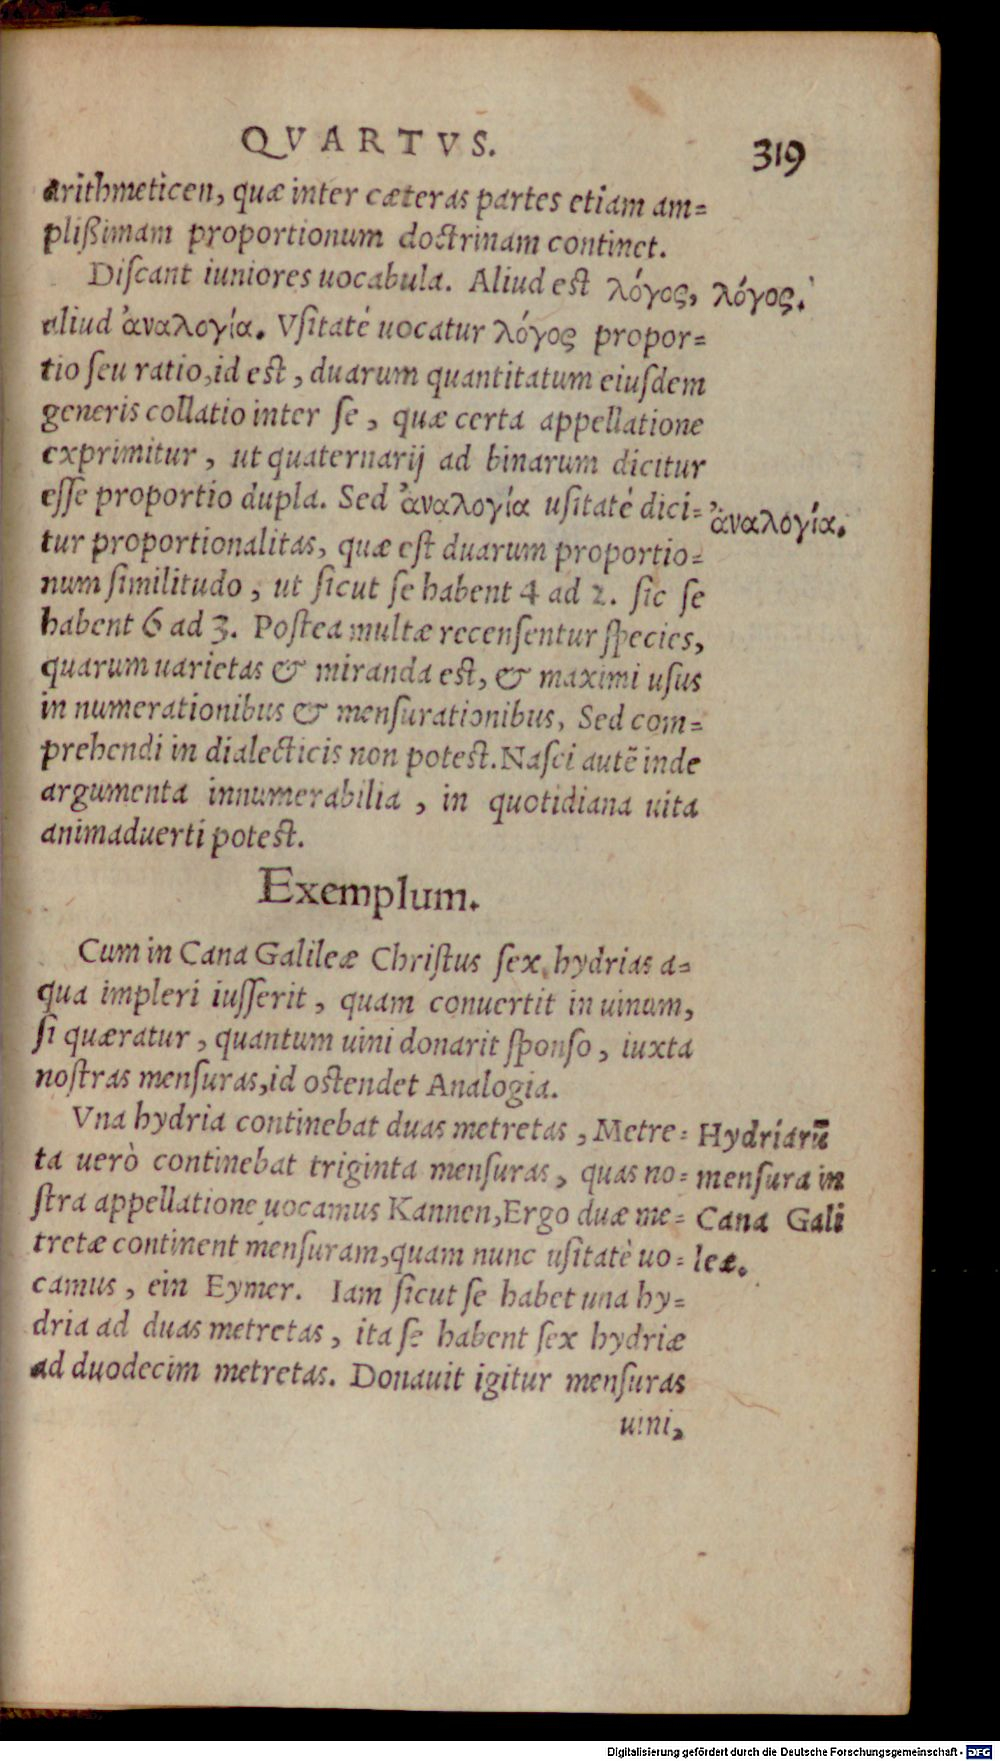 QVARTVS. 319
arithmeticen, quæ inter cæteras partes etiam am=
plißimam proportionum doctrinam continet.
Diſcant iuniores uocabula. Aliud est λόγος, λόγος.
aliud ἀναλογία. Vſitaté uocatur λόγος propor=
tio ſeu ratio, id est, duarum quantitatum eiuſdem
generis collatio inter ſe, quæ certa appellatione
exprimitur, ut quaternarij ad binarum dicitur
eſſe proportio dupla. Sed ἀναλογία uſitaté dici= ἀναλογία.
tur proportionalitas, quæ eſt duarum proportio=
num ſimilitudo, ut ſicut ſe habent 4 ad 2. ſic ſe
habent 6 ad 3. Poſtea multæ recenſentur ſpecies,
quarum uarietas & miranda est, & maximi uſus
in numerationibus & menſurationibus, Sed com=
prehendi in dialecticis non potest. Naſci autẽ inde
argumenta innumerabilia, in quotidiana uita
animaduerti potest.
Exemplum.
Cum in Cana Galileæ Chriſtus ſex hydrias a=
qua impleri iuſſerit, quam conuertit in uinum,
ſi quæratur, quantum uini donarit ſponſo, iuxta
noſtras menſuras, id ostendet Analogia.
Vna hydria continebat duas metretas, Metre= Hydriarũ
ta uerò continebat triginta menſuras, quas no= menſura in
ſtra appellatione uocamus Kannen, Ergo duæ me= Cana Gali
tretæ continent menſuram, quam nunc uſitatè uo= leæ.
camus, ein Eymer. Iam ſicut ſe habet una hy=
dria ad duas metretas, ita ſe habent ſex hydriæ
ad duodecim metretas. Donauit igitur menſuras
uini,
Digitalisierung gefördert durch die Deutsche Forschungsgemeinschaft - DFG